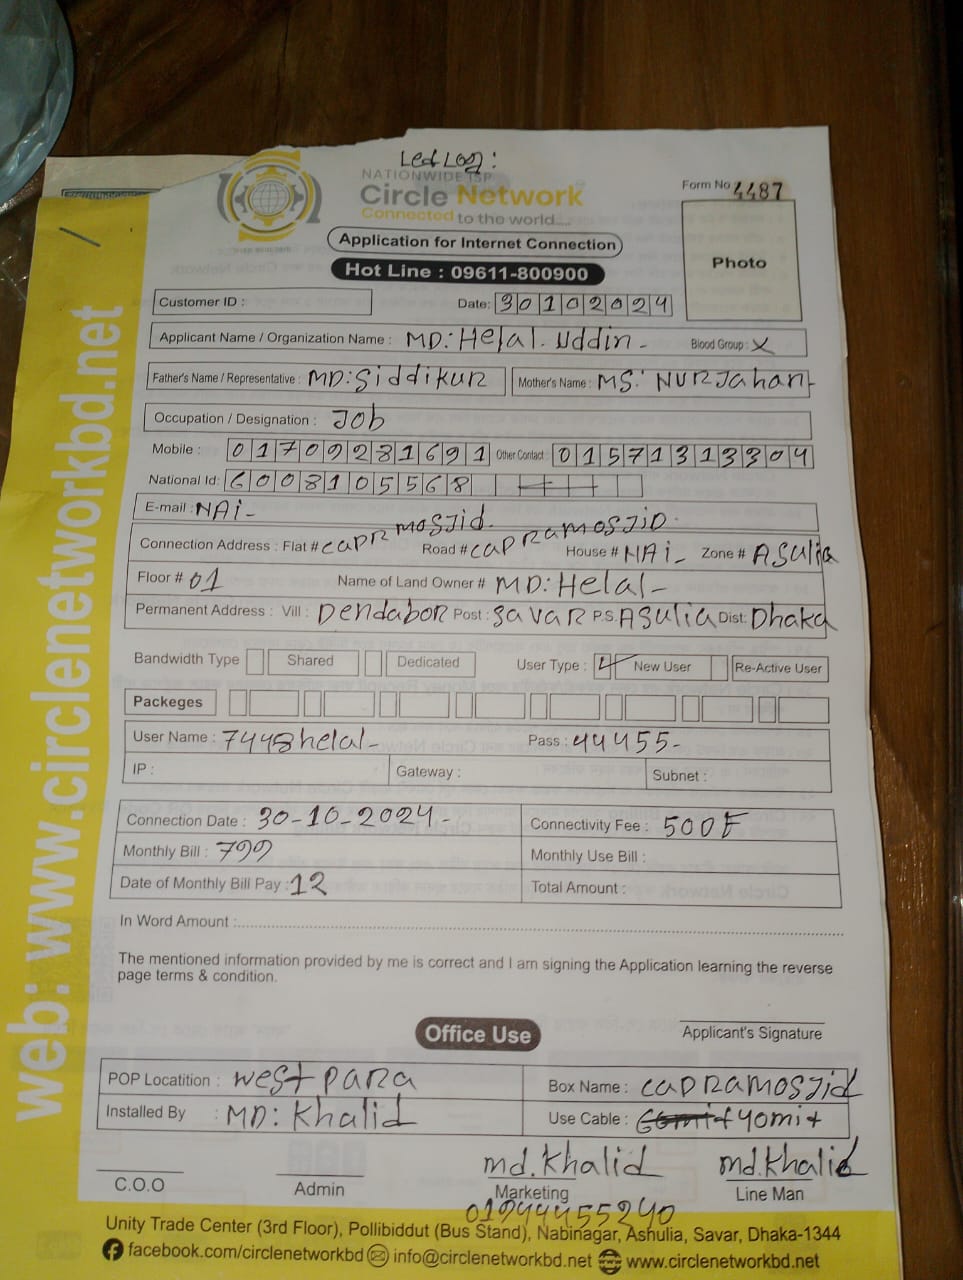 Led Log:
NATIONWIDE ISP
Circle Network
Connected to the world....
Form No 4487
Application for Internet Connection
Hot Line : 09611-800900
Photo
Customer ID :
Date: 30102024
Applicant Name / Organization Name : MD: Helal. Uddin - Blood Group : X
Father's Name / Representative : MD: Siddikur Mother's Name : MS: NURJahan
Occupation / Designation : Job
Mobile : 01709281691 Other Contact : 01571313304
National Id: 6008105568
E-mail : NAi -
Connection Address : Flat # CAPRA MOSJid. Road # CAPRAMOSJID. House # NAi - Zone # ASULIA
Floor # 01 Name of Land Owner # MD: Helal -
Permanent Address : Vill : Dendabor Post : SAVAR P.S. ASULIA Dist: Dhaka
Bandwidth Type Shared Dedicated User Type : New User Re-Active User
Packeges
User Name : 7448helal - Pass : 44455 -
IP : Gateway : Subnet :
Connection Date : 30-10-2024 - Connectivity Fee : 500
Monthly Bill : 799 Monthly Use Bill :
Date of Monthly Bill Pay : 12 Total Amount :
In Word Amount :
The mentioned information provided by me is correct and I am signing the Application learning the reverse
page terms & condition.
Applicant's Signature
Office Use
POP Locatition : West PARA Box Name : CAPRAMOSJid
Installed By : MD: Khalid Use Cable : 40mit
md. Khalid md. Khalid
C.O.O Admin Marketing Line Man
01944455240
Unity Trade Center (3rd Floor), Pollibiddut (Bus Stand), Nabinagar, Ashulia, Savar, Dhaka-1344
facebook.com/circlenetworkbd info@circlenetworkbd.net www.circlenetworkbd.net
web: www.circlenetworkbd.net